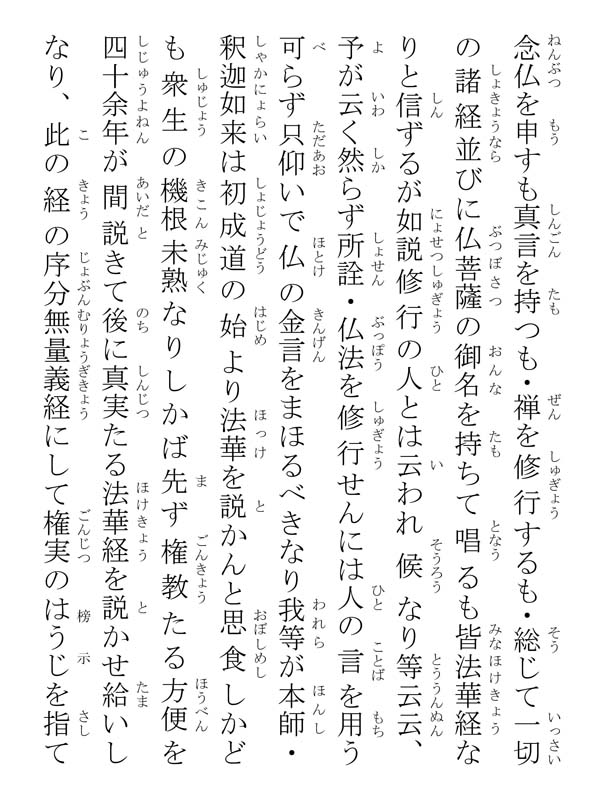 念仏を申すも真言を持つも・禅を修行するも・総じて一切
の諸経並びに仏菩薩の御名を持ちて唱るも皆法華経な
りと信ずるが如説修行の人とは云われ候なり等云云、
予が云く然らず所詮・仏法を修行せんには人の言を用う
可らず只仰いで仏の金言をまほるべきなり我等が本師・
釈迦如来は初成道の始より法華を説かんと思食しかど
も衆生の機根未熟なりしかば先ず権教たる方便を
四十余年が間説きて後に真実たる法華経を説かせ給いし
なり、此の経の序分無量義経にして権実のはうじを指て